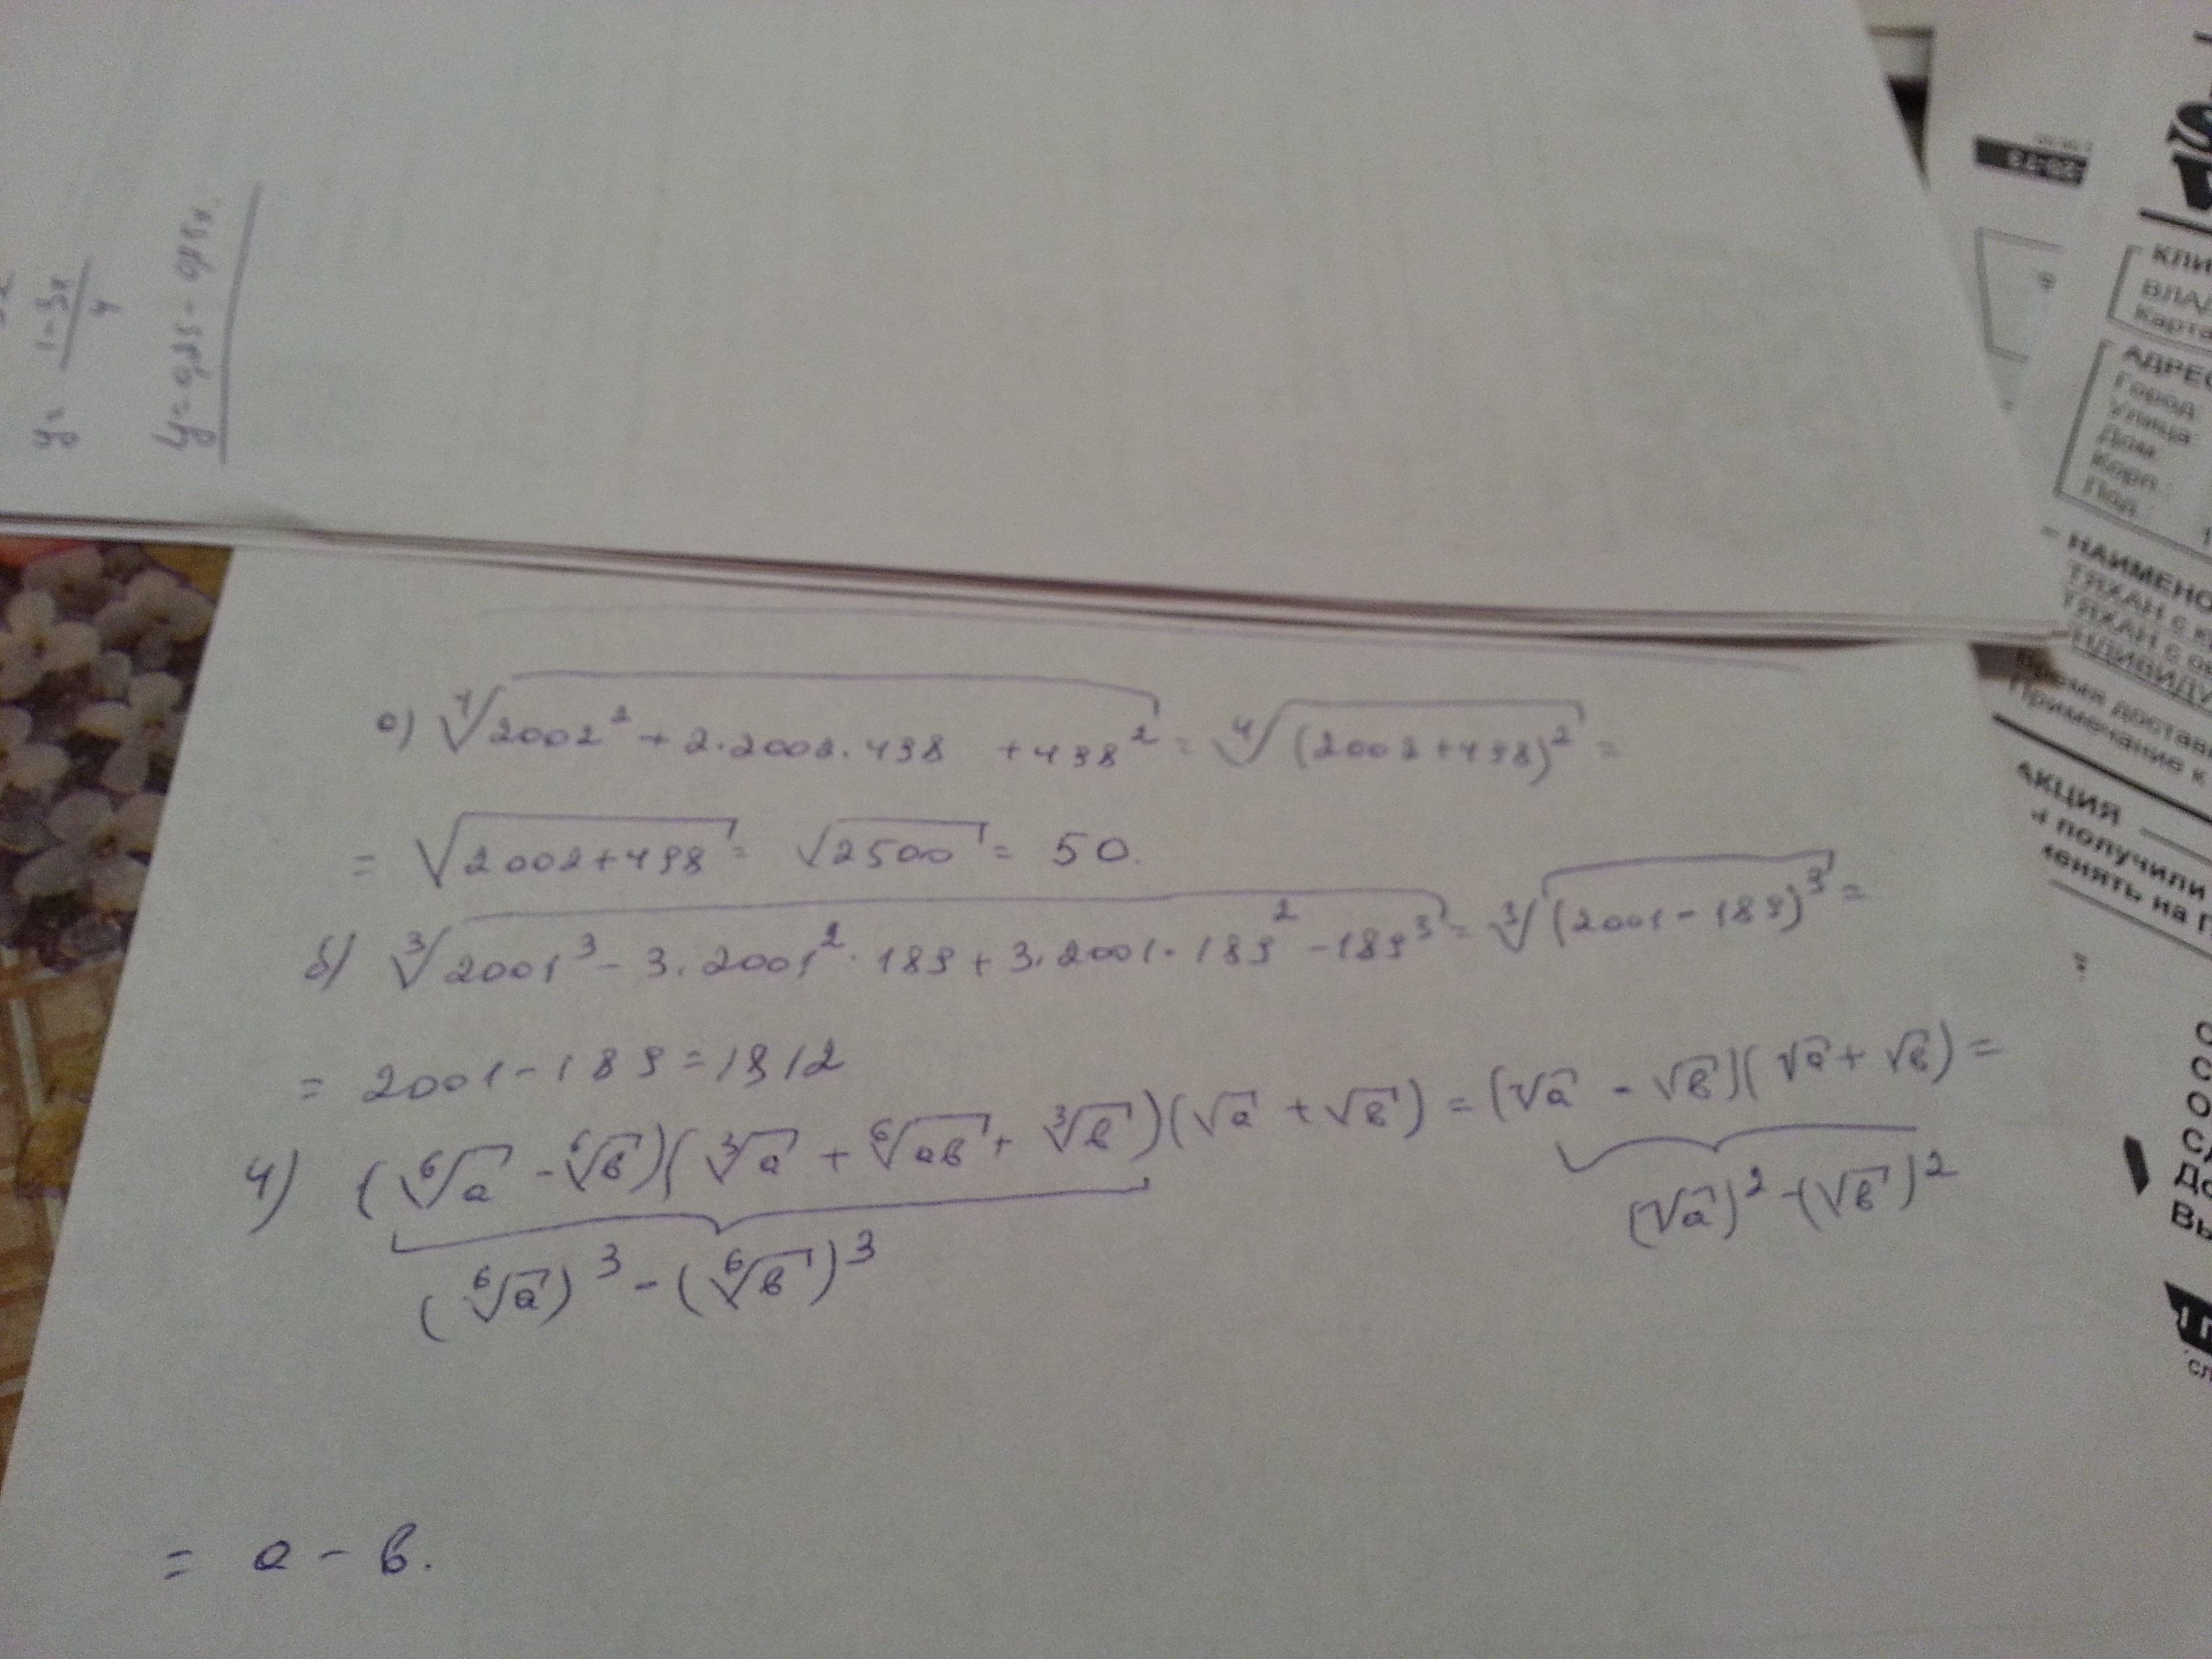 y = (1-3x)/4
y = 0,25 - 0,75x.
а) ⁴√(2002² + 2·2002·498 + 498²) = ⁴√((2002+498)²) =
= √(2002+498) = √2500 = 50.
б) ³√(2001³ - 3·2001²·189 + 3·2001·189² - 189³) = ³√((2001-189)³) =
= 2001 - 189 = 1812
4) (⁶√a - ⁶√b)(³√a + ⁶√ab + ³√b)(√a + √b) = (√a - √b)(√a + √b) =
(⁶√a)³ - (⁶√b)³
(√a)² - (√b)²
= a - b.
КЛИ
ВЛАД
Карта
АДРЕС
Город
Улица
Дом:
Корп.:
Под.:
НАИМЕНО
ТЯХАН с
ТЯХАН с
НДИВИДУ
Время достав
Примечание к
АКЦИЯ
и получили
менять на